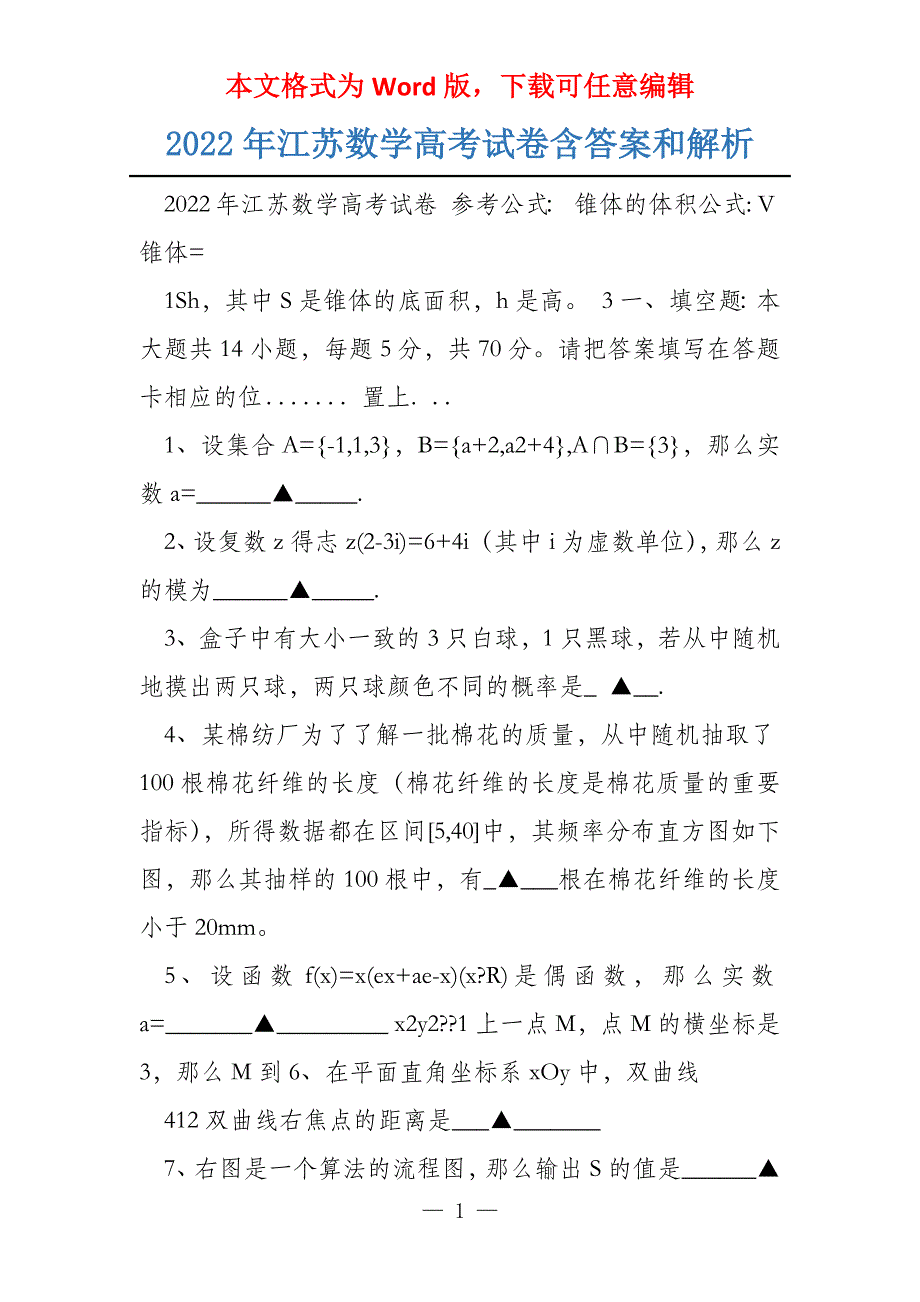 本文格式为 Word 版，下载可任意编辑
2022 年江苏数学高考试卷含答案和解析
2022 年江苏数学高考试卷 参考公式: 锥体的体积公式: V
锥体=
1Sh，其中 S 是锥体的底面积，h 是高。 3 一、填空题: 本
大题共 14 小题，每题 5 分，共 70 分。请把答案填写在答题
卡相应的位....... 置上. ..
1、设集合 A={-1,1,3}，B={a+2,a2+4},A∩B={3}，那么实
数 a=______▲_____.
2、设复数 z 得志 z(2-3i)=6+4i（其中 i 为虚数单位），那么 z
的模为______▲_____.
3、盒子中有大小一致的 3 只白球，1 只黑球，若从中随机
地摸出两只球，两只球颜色不同的概率是_ ▲__.
4、某棉纺厂为了了解一批棉花的质量，从中随机抽取了
100 根棉花纤维的长度（棉花纤维的长度是棉花质量的重要
指标），所得数据都在区间[5,40]中，其频率分布直方图如下
图，那么其抽样的 100 根中，有_▲___根在棉花纤维的长度
小于 20mm。
5、设函数 f(x)=x(ex+ae-x)(x?R)是偶函数，那么实数
a=_______▲_________ x2y2??1 上一点 M，点 M 的横坐标是
3，那么 M 到 6、在平面直角坐标系 xOy 中，双曲线
412 双曲线右焦点的距离是___▲_______
7、右图是一个算法的流程图，那么输出 S 的值是______▲
— 1 —